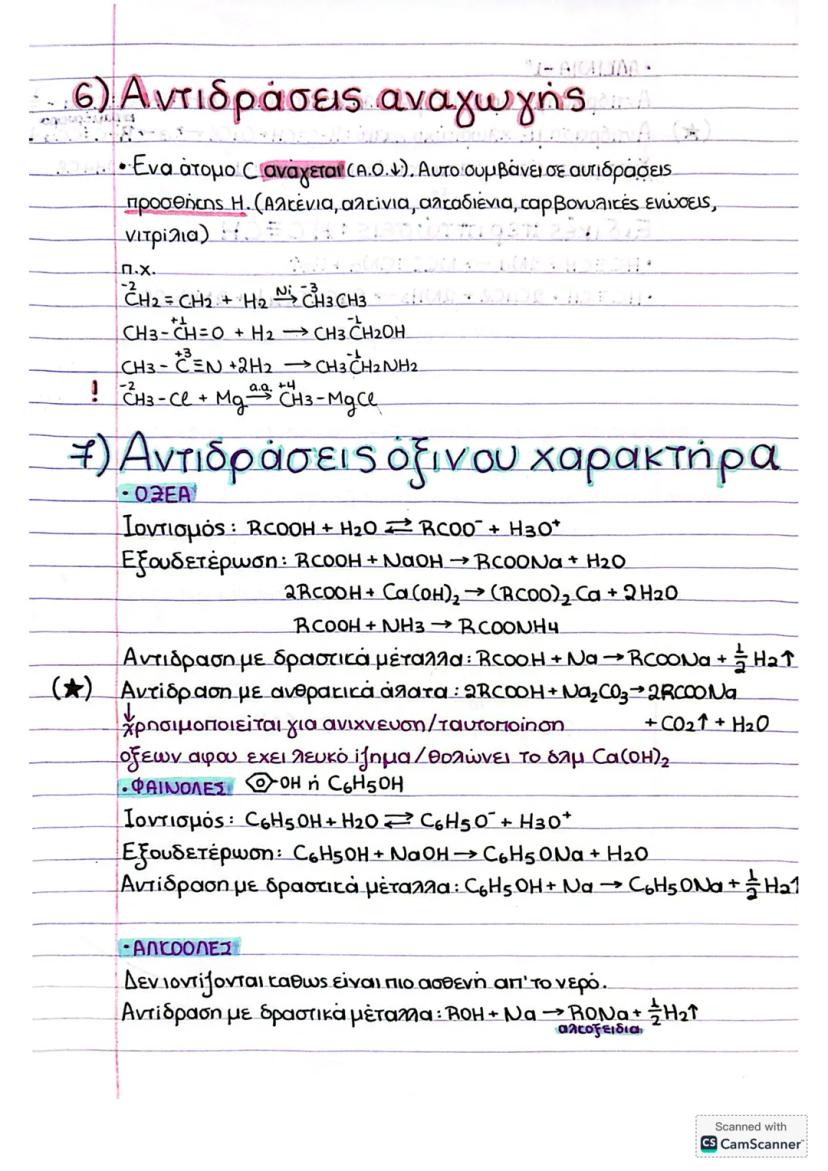 6) Αντιδράσεις αναγωγής
• Ενα άτομο C ανάγεται (Α.Ο.↓). Αυτο συμβάνει σε αντιδράσεις
προσθήκης Η. (Αλκένια, αλκίνια, αλκαδιένια, καρβονυλικές ενώσεις,
νιτρίλια)
π.χ.
-2 -3
CH2 = CH2 + H2 →(Ni) CH3CH3
+1 -1
CH3 - CH=O + H2 → CH3CH2OH
+3 -1
CH3 - C≡N + 2H2 → CH3CH2NH2
-2 +4
! CH3-Cl + Mg →(α.α.) CH3-MgCl
7) Αντιδράσεις όξινου χαρακτήρα
• ΟΞΕΑ
Ιοντισμός: RCOOH + H2O ⇌ RCOO⁻ + H3O⁺
Εξουδετέρωση: RCOOH + NaOH → RCOONa + H2O
2RCOOH + Ca(OH)₂ → (RCOO)₂Ca + 2H2O
RCOOH + NH3 → RCOONH4
Αντιδραση με δραστικά μέταλλα: RCOOH + Na → RCOONa + ½ H2↑
(★) Αντίδραση με ανθρακικά άλατα: 2RCOOH + Na₂CO₃ → 2RCOONa
↓
χρησιμοποιείται για ανιχνευση/ταυτοποίηση + CO2↑ + H2O
οξεων αφου εχει λευκό ίζημα/θολώνει το δλμ Ca(OH)₂
• ΦΑΙΝΟΛΕΣ -OH ή C6H5OH
Ιοντισμός: C6H5OH + H2O ⇌ C6H5O⁻ + H3O⁺
Εξουδετέρωση: C6H5OH + NaOH → C6H5ONa + H2O
Αντίδραση με δραστικά μέταλλα: C6H5OH + Na → C6H5ONa + ½ H2↑
• ΑΛΚΟΟΛΕΣ
Δεν ιοντίζονται καθως είναι πιο ασθενή απ' το νερό.
Αντίδραση με δραστικά μέταλλα: ROH + Na → RONa + ½ H2↑
αλκοξείδια
Scanned with
CS CamScanner